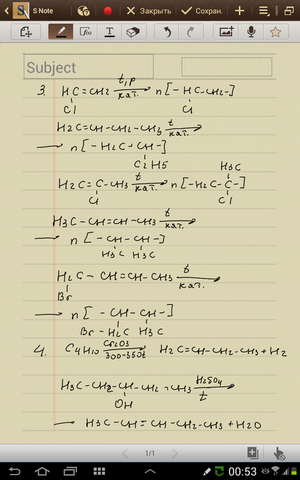 S Note
Закрыть
Сохран.
Subject
3. HC=CH2 t,p кат. n[-HC-CH2-]
Cl Cl
H2C=CH-CH2-CH3 t кат.
n[-H2C-CH-]
C2H5
H3C
H2C=C-CH3 t кат. n[-H2C-C-]
Cl Cl
H3C-CH=CH-CH3 t кат.
n[-CH-CH-]
H3C H3C
H2C-CH=CH-CH3 t кат.
Br
n[-CH-CH-]
Br-H2C H3C
4. C4H10 Cr2O3 300-350t H2C=CH-CH2-CH3+H2
H3C-CH2-CH-CH2-CH3 H2SO4 t
OH
H3C-CH=CH-CH2-CH3+H2O
1/1
00:53